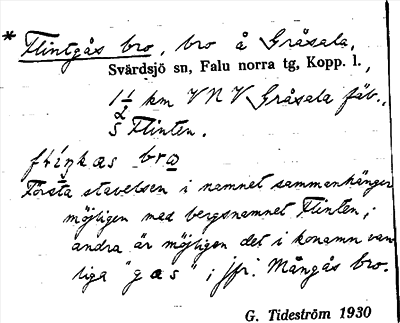 * Flintgås bro, bro å Gråsala,
Svärdsjö sn, Falu norra tg, Kopp. l.,
1 1/2 km VNV Gråsala fäb.,
S Flinten.
bro
Första stavelsen i namnet sammanhänger
möjligen med bergsnamnet Flinten;
andra är möjligen det i konamn van
liga "gås"; jfr. Mångås bro.
G. Tideström 1930